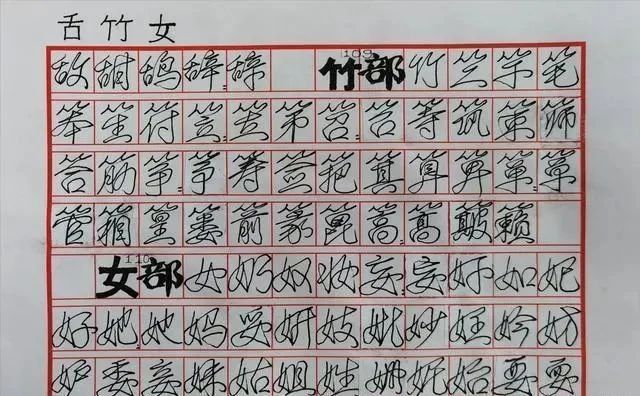 舌竹女
敌甜鸹辞辞 109 竹部 竹竺竿笔
笨笙符笠笠第笤笞等筑策筛
答筋筝筝筹签筢箕算箪
管箍篓箭篆篦篙篙簸籁
110 女部 女奶奴妆妄妄奸如妃
好她她妈妥妍妓妣妙妊妗妨
妒委妾妹姑姐姓姗妮始耍耍